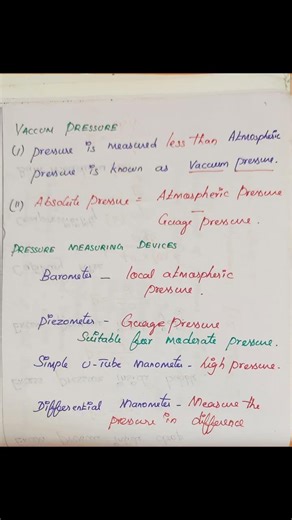 VACCUM PRESSURE
(i) pressure is measured less than Atmospheric
pressure is known as Vaccum pressure.
(ii) Absolute pressure = Atmospheric pressure
-
Guage pressure.
PRESSURE MEASURING DEVICES
Barometer - local atmospheric
pressure.
Piezometer - Guage pressure
Suitable for moderate pressure.
Simple U-Tube Manometer - high pressure.
Differential Manometer - Measure the
pressure in difference